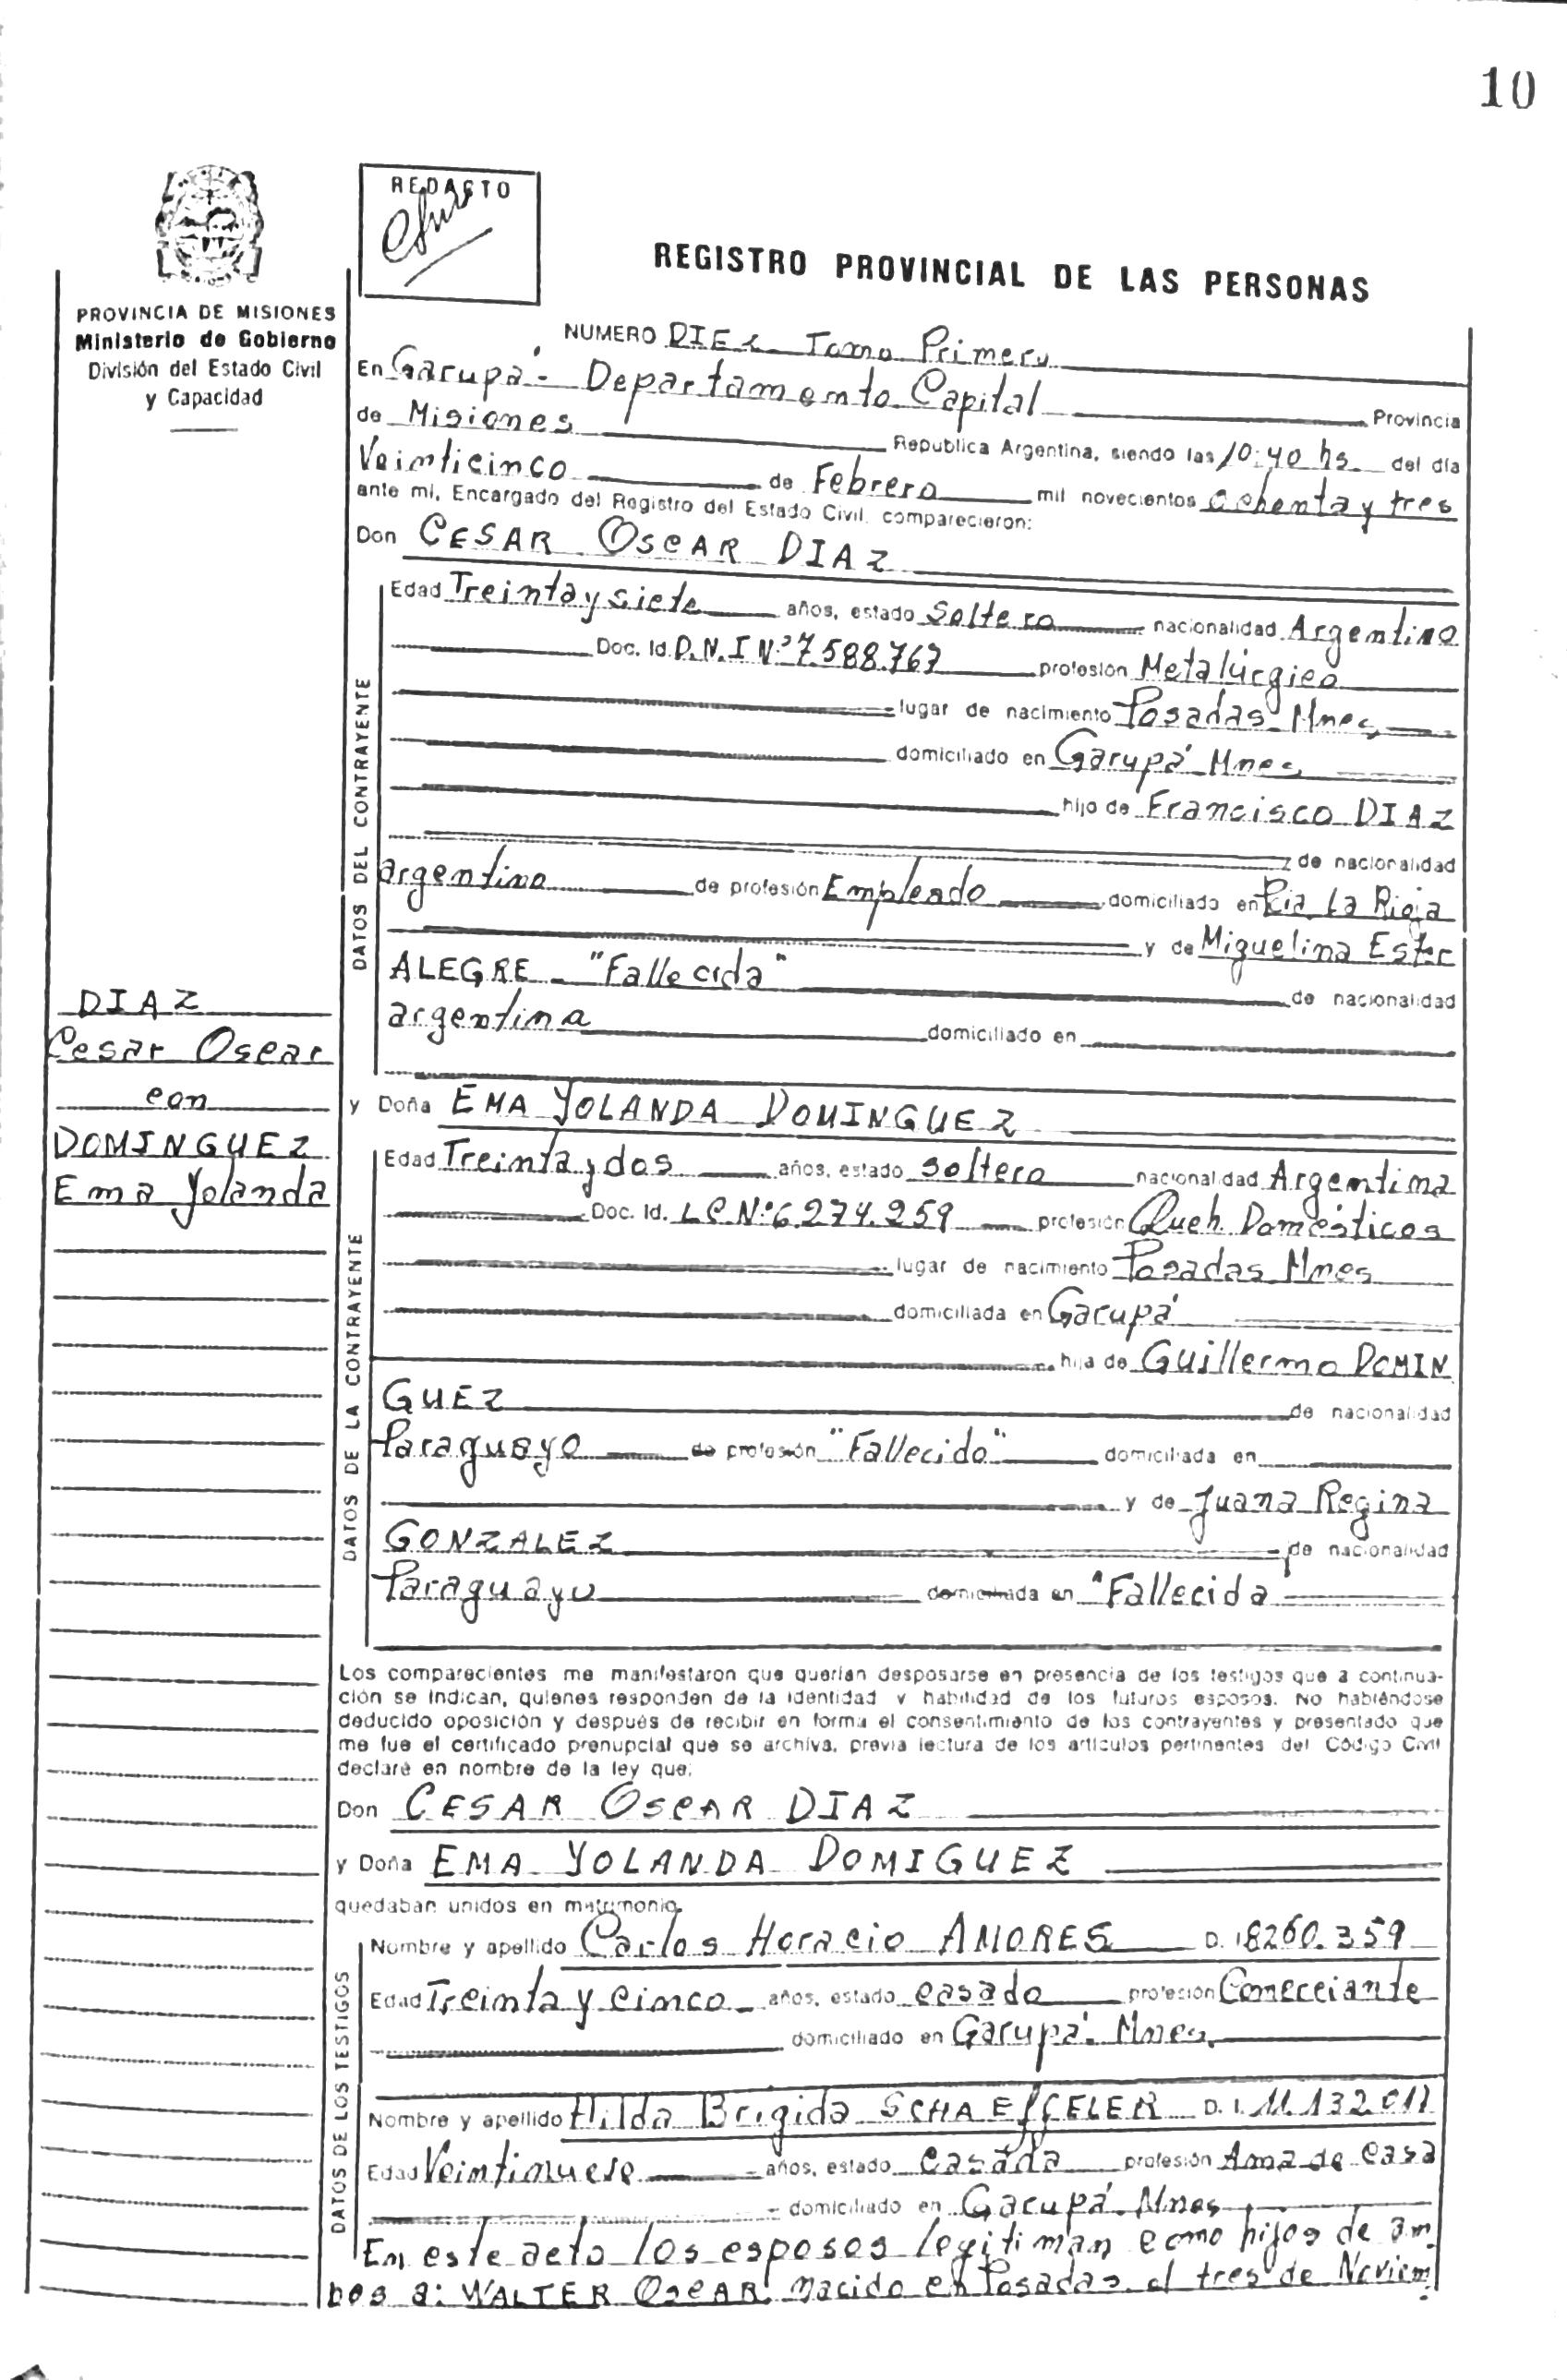 10
REDACTO
REGISTRO PROVINCIAL DE LAS PERSONAS
PROVINCIA DE MISIONES
Ministerio de Gobierno
División del Estado Civil
y Capacidad
NUMERO DIEZ Tomo Primero
En Garupá - Departamento Capital Provincia
de Misiones Republica Argentina, siendo las 10:40 hs. del día
Veinticinco de Febrero mil novecientos ochenta y tres
ante mi, Encargado del Registro del Estado Civil, comparecieron:
Don CESAR OSCAR DIAZ
DATOS DEL CONTRAYENTE
Edad Treinta y siete años, estado Soltero nacionalidad Argentino
Doc. Id. D.N.I Nº 7.588.767 profesión Metalúrgico
lugar de nacimiento Posadas Mnes
domiciliado en Garupá Mnes
hijo de Francisco DIAZ
de nacionalidad
argentino de profesión Empleado domiciliado en Pcia. La Rioja
y de Miguelina Ester
ALEGRE - "Fallecida" de nacionalidad
argentina domiciliado en
DIAZ
Cesar Oscar
con
DOMINGUEZ
Ema Yolanda
y Doña EMA YOLANDA DOMINGUEZ
DATOS DE LA CONTRAYENTE
Edad Treinta y dos años, estado soltero nacionalidad Argentina
Doc. Id. LC Nº 6.274.259 profesión Queh. Domésticos
lugar de nacimiento Posadas Mnes
domiciliada en Garupá
hija de Guillermo DOMIN
GUEZ de nacionalidad
Paraguayo de profesión "Fallecido" domiciliada en
y de Juana Regina
GONZALEZ de nacionalidad
Paraguayo domiciliada en "Fallecida
Los comparecientes me manifestaron que querían desposarse en presencia de los testigos que a continua-
ción se indican, quienes responden de la identidad y habilidad de los futuros esposos. No habiéndose
deducido oposición y después de recibir en forma el consentimiento de los contrayentes y presentado que
me fue el certificado prenupcial que se archiva, previa lectura de los artículos pertinentes del Código Civil
declaré en nombre de la ley que:
Don CESAR OSCAR DIAZ
y Doña EMA YOLANDA DOMIGUEZ
quedaban unidos en matrimonio.
DATOS DE LOS TESTIGOS
Nombre y apellido Carlos Horacio AMORES D. I 8260.359
Edad Treinta y Cinco años, estado casado profesión Comerciante
domiciliado en Garupá. Mnes.
Nombre y apellido Hilda Brigida SCHAEFFELER D. I. 11.132.011
Edad Veintinueve años, estado Casada profesión Ama de Casa
domiciliado en Garupá. Mnes
En este acto los esposos legitiman como hijos de am
bos a: WALTER OSCAR, nacido en Posadas el tres de Noviem